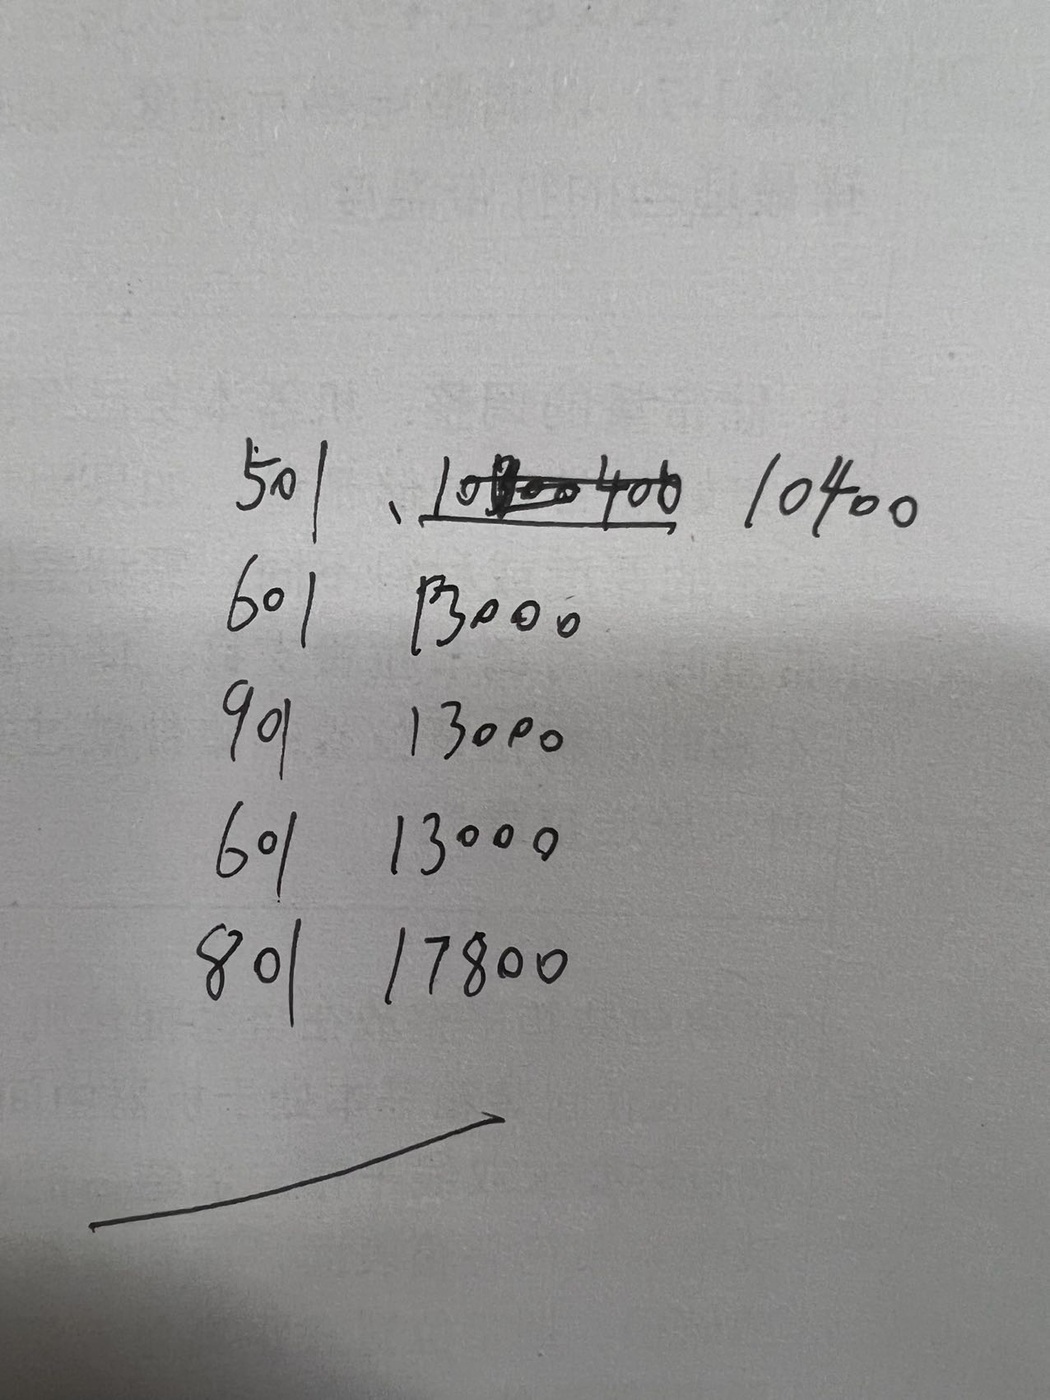 501 10400
601 13000
901 13000
601 13000
801 17800